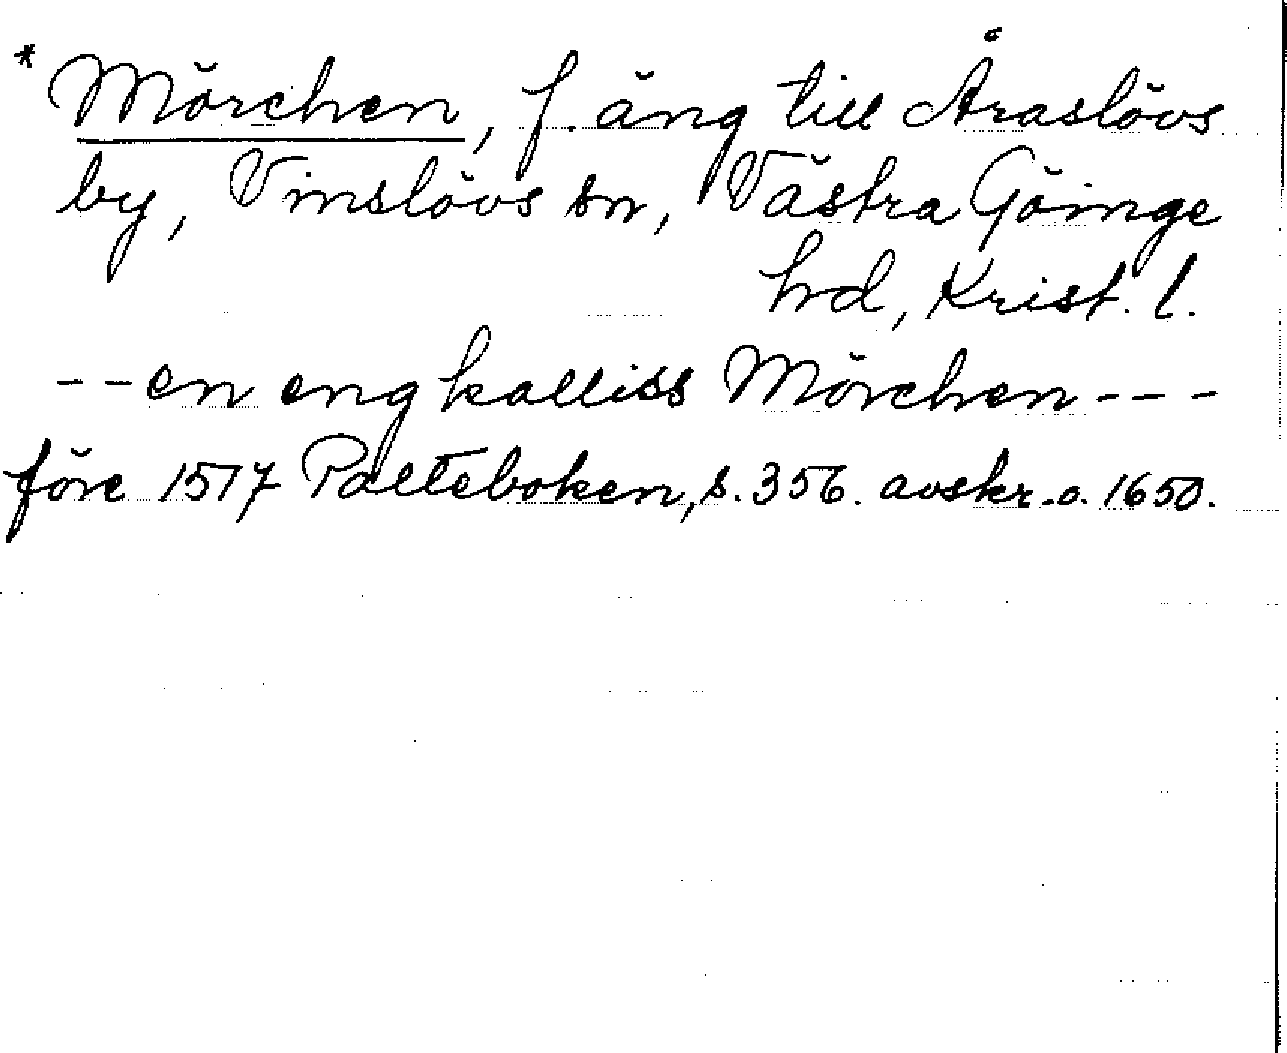 * Mörchen, f. äng till Åraslövs
by, Vinslövs sn, Västra Göinge
hd, Krist. l.
-- en eng kalliss Mörchen ---
före 1517 Palteboken, s. 356. avskr. o. 1650.